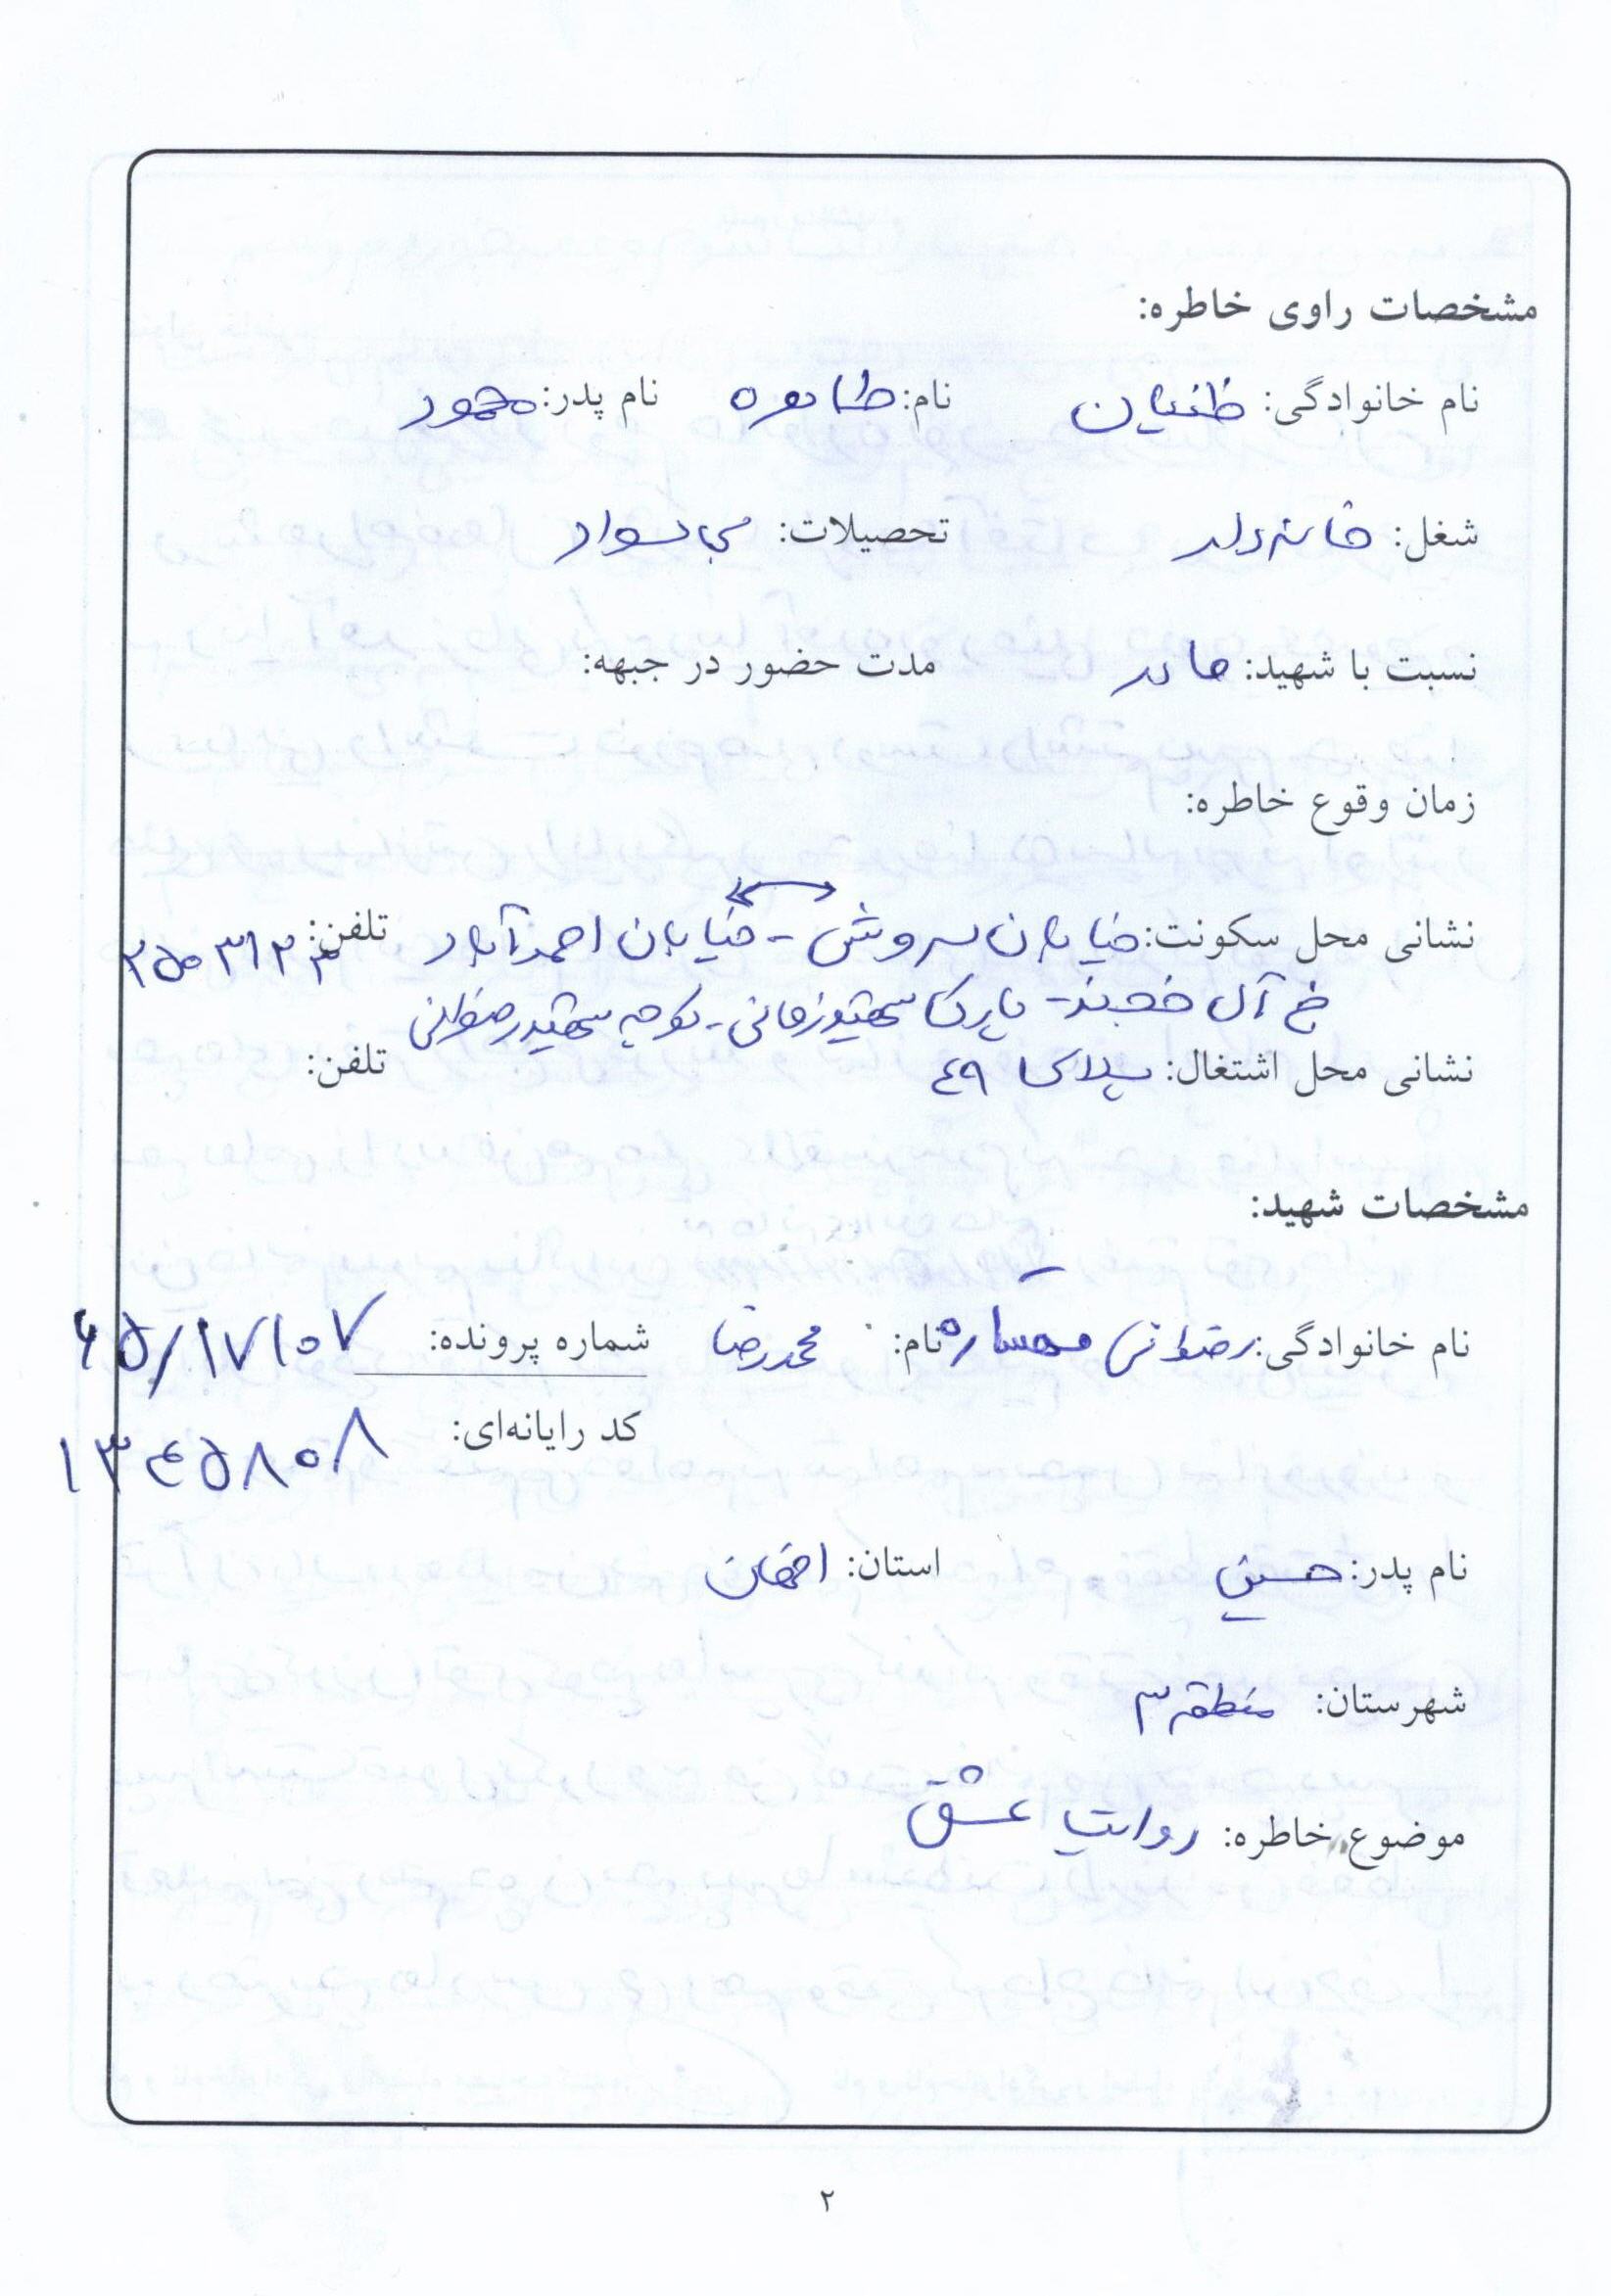 مشخصات راوی خاطره:
نام خانوادگی: نام: طاهره نام پدر: محمود
شغل: خانه‌دار تحصیلات: بی سواد
نسبت با شهید: مادر مدت حضور در جبهه:
زمان وقوع خاطره:
نشانی محل سکونت: خیابان سروش - خیابان احمدآباد تلفن:
خ آل خجند - پارک شهید زمانی - کوچه شهید رضوانی
نشانی محل اشتغال: پلاک ۴۹ تلفن:
مشخصات شهید:
نام خانوادگی: رضوانی نام: محمدرضا شماره پرونده: ۶۵/۱۷۱۰۷
کد رایانه‌ای: ۱۳۴۵۸۰۸
نام پدر: حسین استان: اصفهان
شهرستان: منطقه ۳
موضوع خاطره: روایت عشق
۲